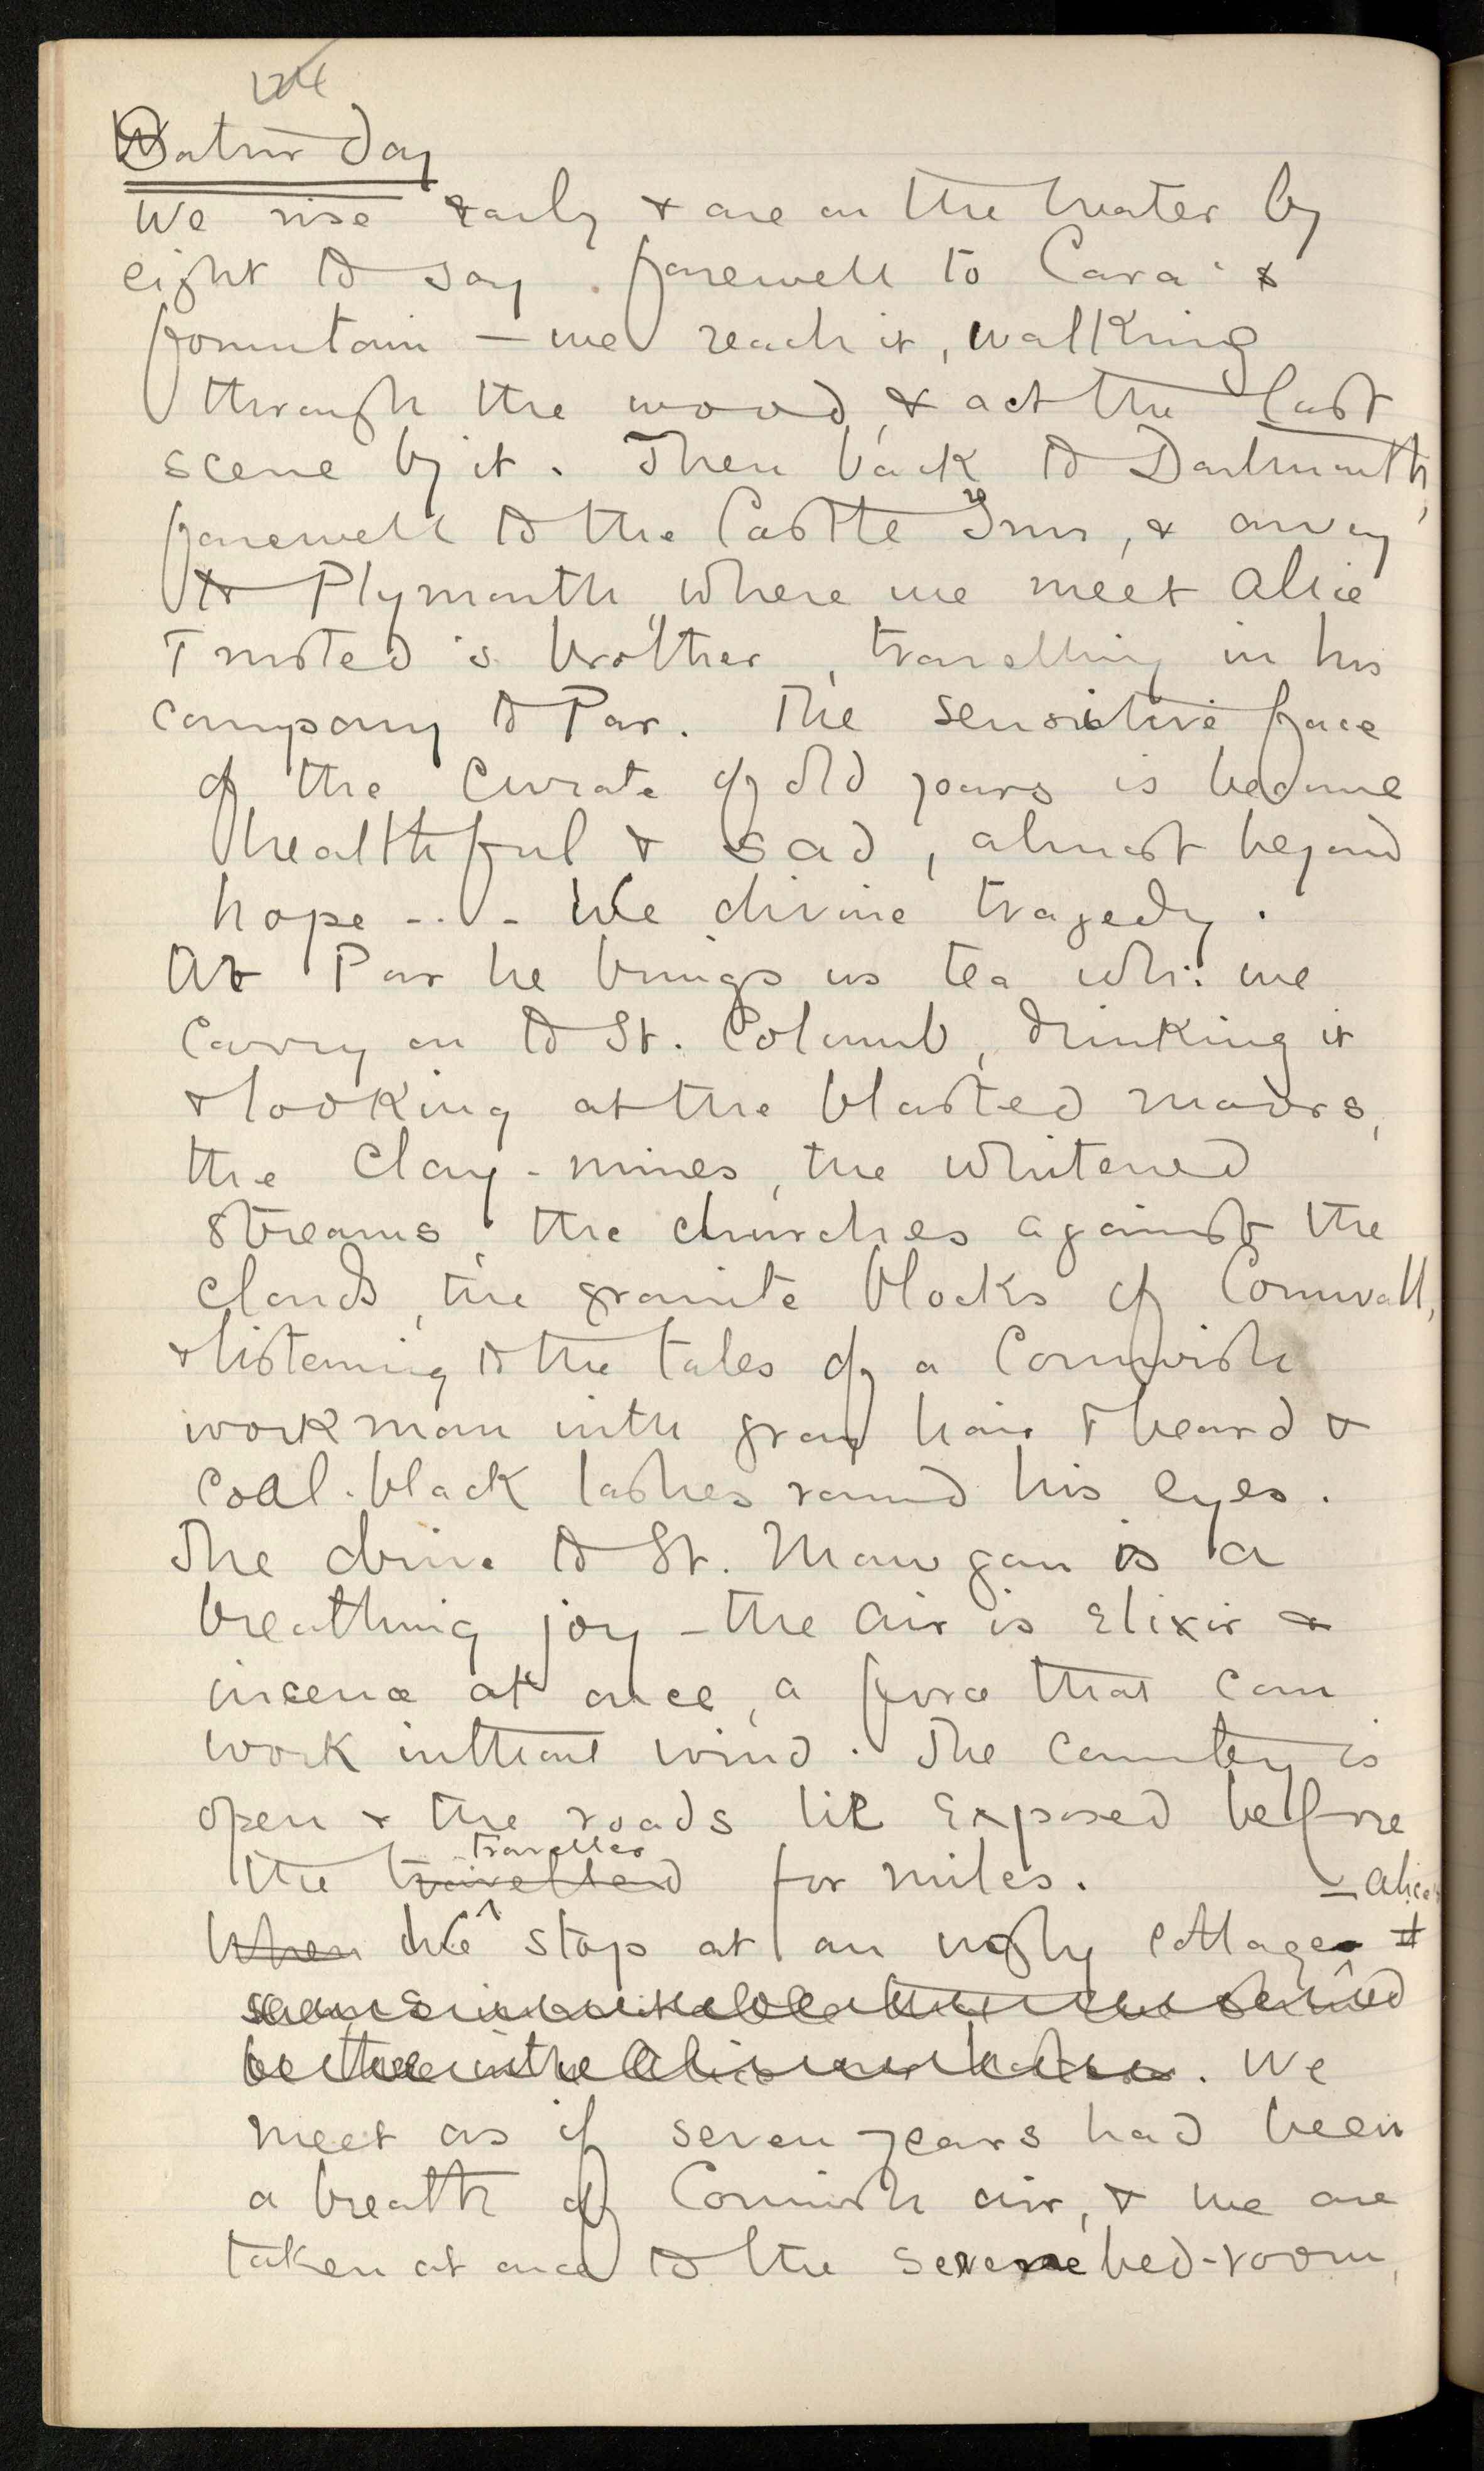 Saturday
We rise early & are on the water by
eight to say farewell to Cara's
fountain – we reach it, walking
through the wood, & act the last
scene by it. Then back to Dartmouth,
farewell to the Castle Inn, & away
to Plymouth, where we meet Alice
Trusted's brother, travelling in his
company to Par. The sensitive face
of the Curate of old years is become
healthful & sad, almost beyond
hope - . . - We divine tragedy.
At Par he brings us tea whi: we
carry on to St. Columb, drinking it
& looking at the blasted moors,
the Clay-mines, the whitened
streams, the churches against the
clouds, the granite blocks of Cornwall,
& listening to the tales of a Cornwish
workman with gray hair & beard &
coal-black lashes round his eyes.
The drive to St. Mawgan is a
breathing joy – the air is Elixir &
incense at once, a force that can
work without wind. The country is
open & the roads lie Exposed before
the travelled traveller for miles.
– Alice's
When We stop at an ugly cottage
We
meet as if seven years had been
a breath of Cornish air, & we are
taken at once to the serene bed-room,